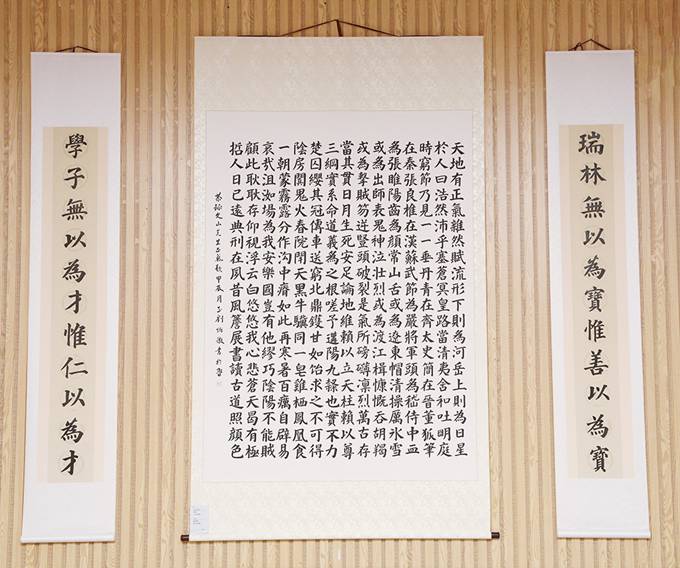 瑞林無以為寶惟善以為寶
天地有正氣雜然賦流形下則為河岳上則為日星
於人曰浩然沛乎塞蒼冥皇路當清夷含和吐明庭
時窮節乃見一一垂丹青在齊太史簡在晉董狐筆
在秦張良椎在漢蘇武節為嚴將軍頭為嵇侍中血
為張睢陽齒為顏常山舌或為遼東帽清操厲冰雪
或為出師表鬼神泣壯烈或為渡江楫慷慨吞胡羯
或為擊賊笏逆豎頭破裂是氣所磅礴凜烈萬古存
當其貫日月生死安足論地維賴以立天柱賴以尊
三綱實系命道義為之根嗟予遘陽九隸也實不力
楚囚纓其冠傳車送窮北鼎鑊甘如飴求之不可得
陰房闃鬼火春院閉天黑牛驥同一皂雞栖鳳凰食
一朝蒙霧露分作沟中瘠如此再寒暑百癘自辟易
哀哉沮洳場為我安樂國豈有他繆巧陰陽不能賊
顧此耿耿存仰視浮云白悠悠我心悲蒼天曷有極
哲人日已遠典刑在夙昔風簷展書讀古道照顏色
恭錄文山先生正氣歌
學子無以為才惟仁以為才